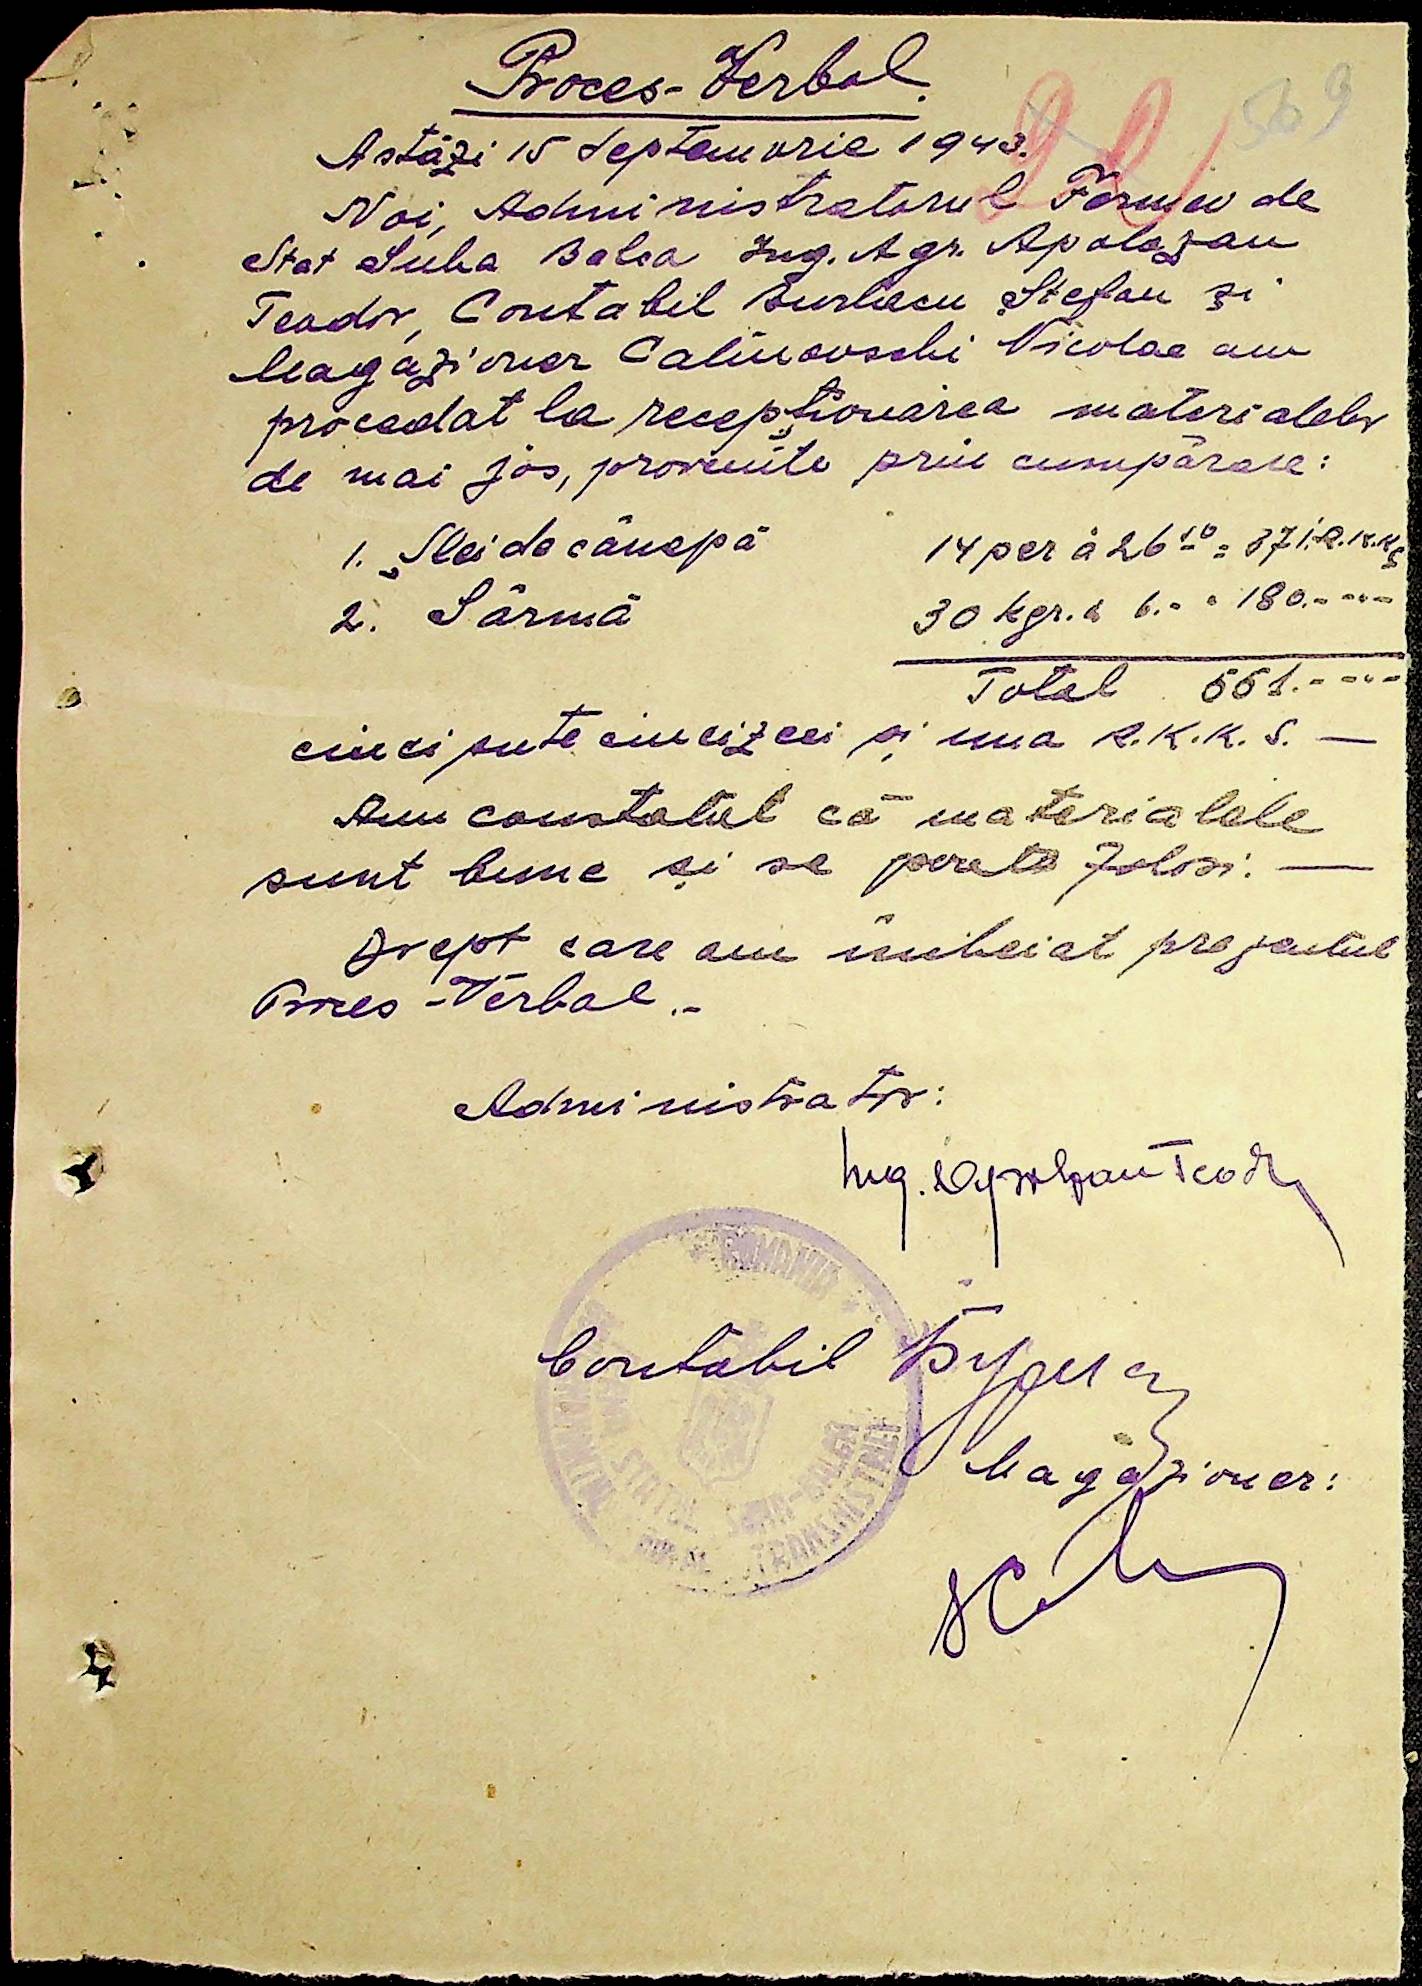 Proces-Verbal.
22 569
Astăzi 15 Septemvrie 1943.
Noi, Administratorul Fermei de
Stat Suha Balca Ing. Agr. Apolozan
Teodor, Contabil Burlacu Ștefan și
Magazioner Calinovschi Nicolae am
procedat la recepționarea materialelor
de mai jos, provenite prin cumpărare:
1. Șlei de cânepă 14 per à 26 50 = 371.R.K.K.S
2. Sârmă 30 kgr. à 6.- = 180.- -"-
Total 551.- -"-
cinci sute cincizeci și una R.K.K.S. —
Am constatat că materialele
sunt bune și se poate folosi. —
Drept care am încheiat prezentul
Proces-Verbal.-
Administrator:
Ing. Apolozan Teodor
ROMANIA
Contabil
STAT SUHA-BALCA
TRANSNISTRIEI
Magazioner: